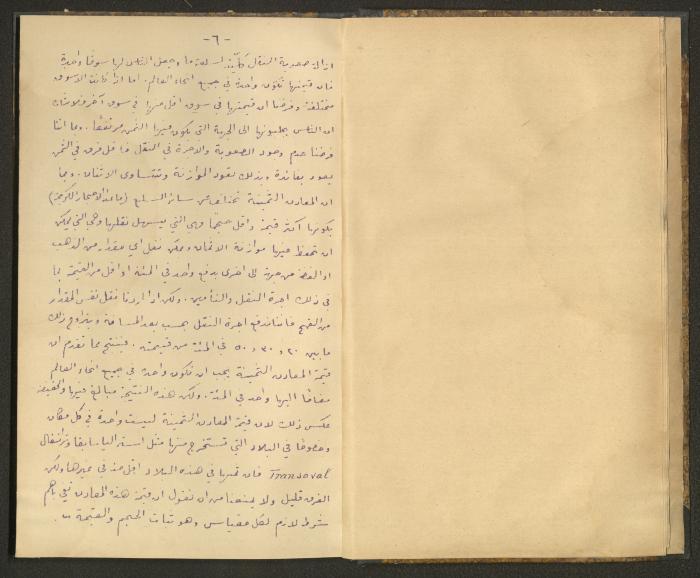 -٦-
ازالة صعوبة النقل كليّة لسلعة ما وجعل الناس لها سوقًا واحدة
فان قيمتها تكون واحدة في جميع انحاء العالم. اما اذا كانت الاسواق
مختلفة وفرضنا ان قيمتها في سوق اقل منها في سوق آخر فلا شك
ان الناس يجلبونها الى الجهة التي يكون فيها الثمن مرتفعًا. وبما اننا
فرضنا عدم وجود الصعوبة والاجرة في النقل فاقل فرق في الثمن
يعود بفائدة وبذلك تعود الموازنة وتتساوى الاثمان. وبما
ان المعادن الثمينة تختلف عن سائر السلع (ما عدا الاحجار الكريمة)
بكونها اكثر قيمة واقل حجمًا فهي التي يسهل نقلها وهي التي يمكن
ان تحفظ فيها موازنة الاثمان ويمكن نقل اي مقدار من الذهب
او الفضة من جهة الى اخرى بدفع واحد في المئة او اقل من القيمة بما
في ذلك اجرة النقل والتأمين. ولكن اذا اردنا نقل نفس المقدار
من القمح فاننا ندفع اجرة النقل بحسب بعد المسافة ويتراوح ذلك
ما بين ٢٠ و ٣٠ و ٥٠ في المئة من قيمته. فينتج مما تقدم ان
قيمة المعادن الثمينة يجب ان تكون واحدة في جميع انحاء العالم
مضافًا اليها واحد في المئة. ولكن هذه النتيجة مبالغ فيها والحقيقة
عكس ذلك لان قيمة المعادن الثمينة ليست واحدة في كل مكان
وخصوصًا في البلاد التي تستخرج منها مثل استراليا سابقا وترانسفال
Transval فان قيمتها في هذه البلاد اقل منه في غيرها ولكن
الفرق قليل ولا يمنعنا من ان نقول ان قيمة هذه المعادن تفي باهم
شرط لازم لكل مقياس وهو ثبات الحجم والقيمة